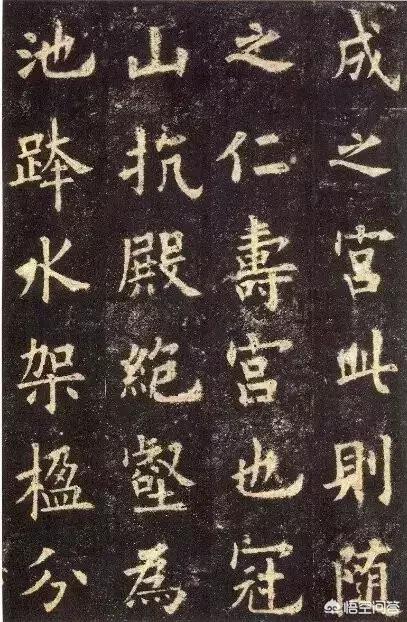 成之宫此則随
之仁壽宫也冠
山抗殿絶壑為
池跨水架楹分
悟空问答